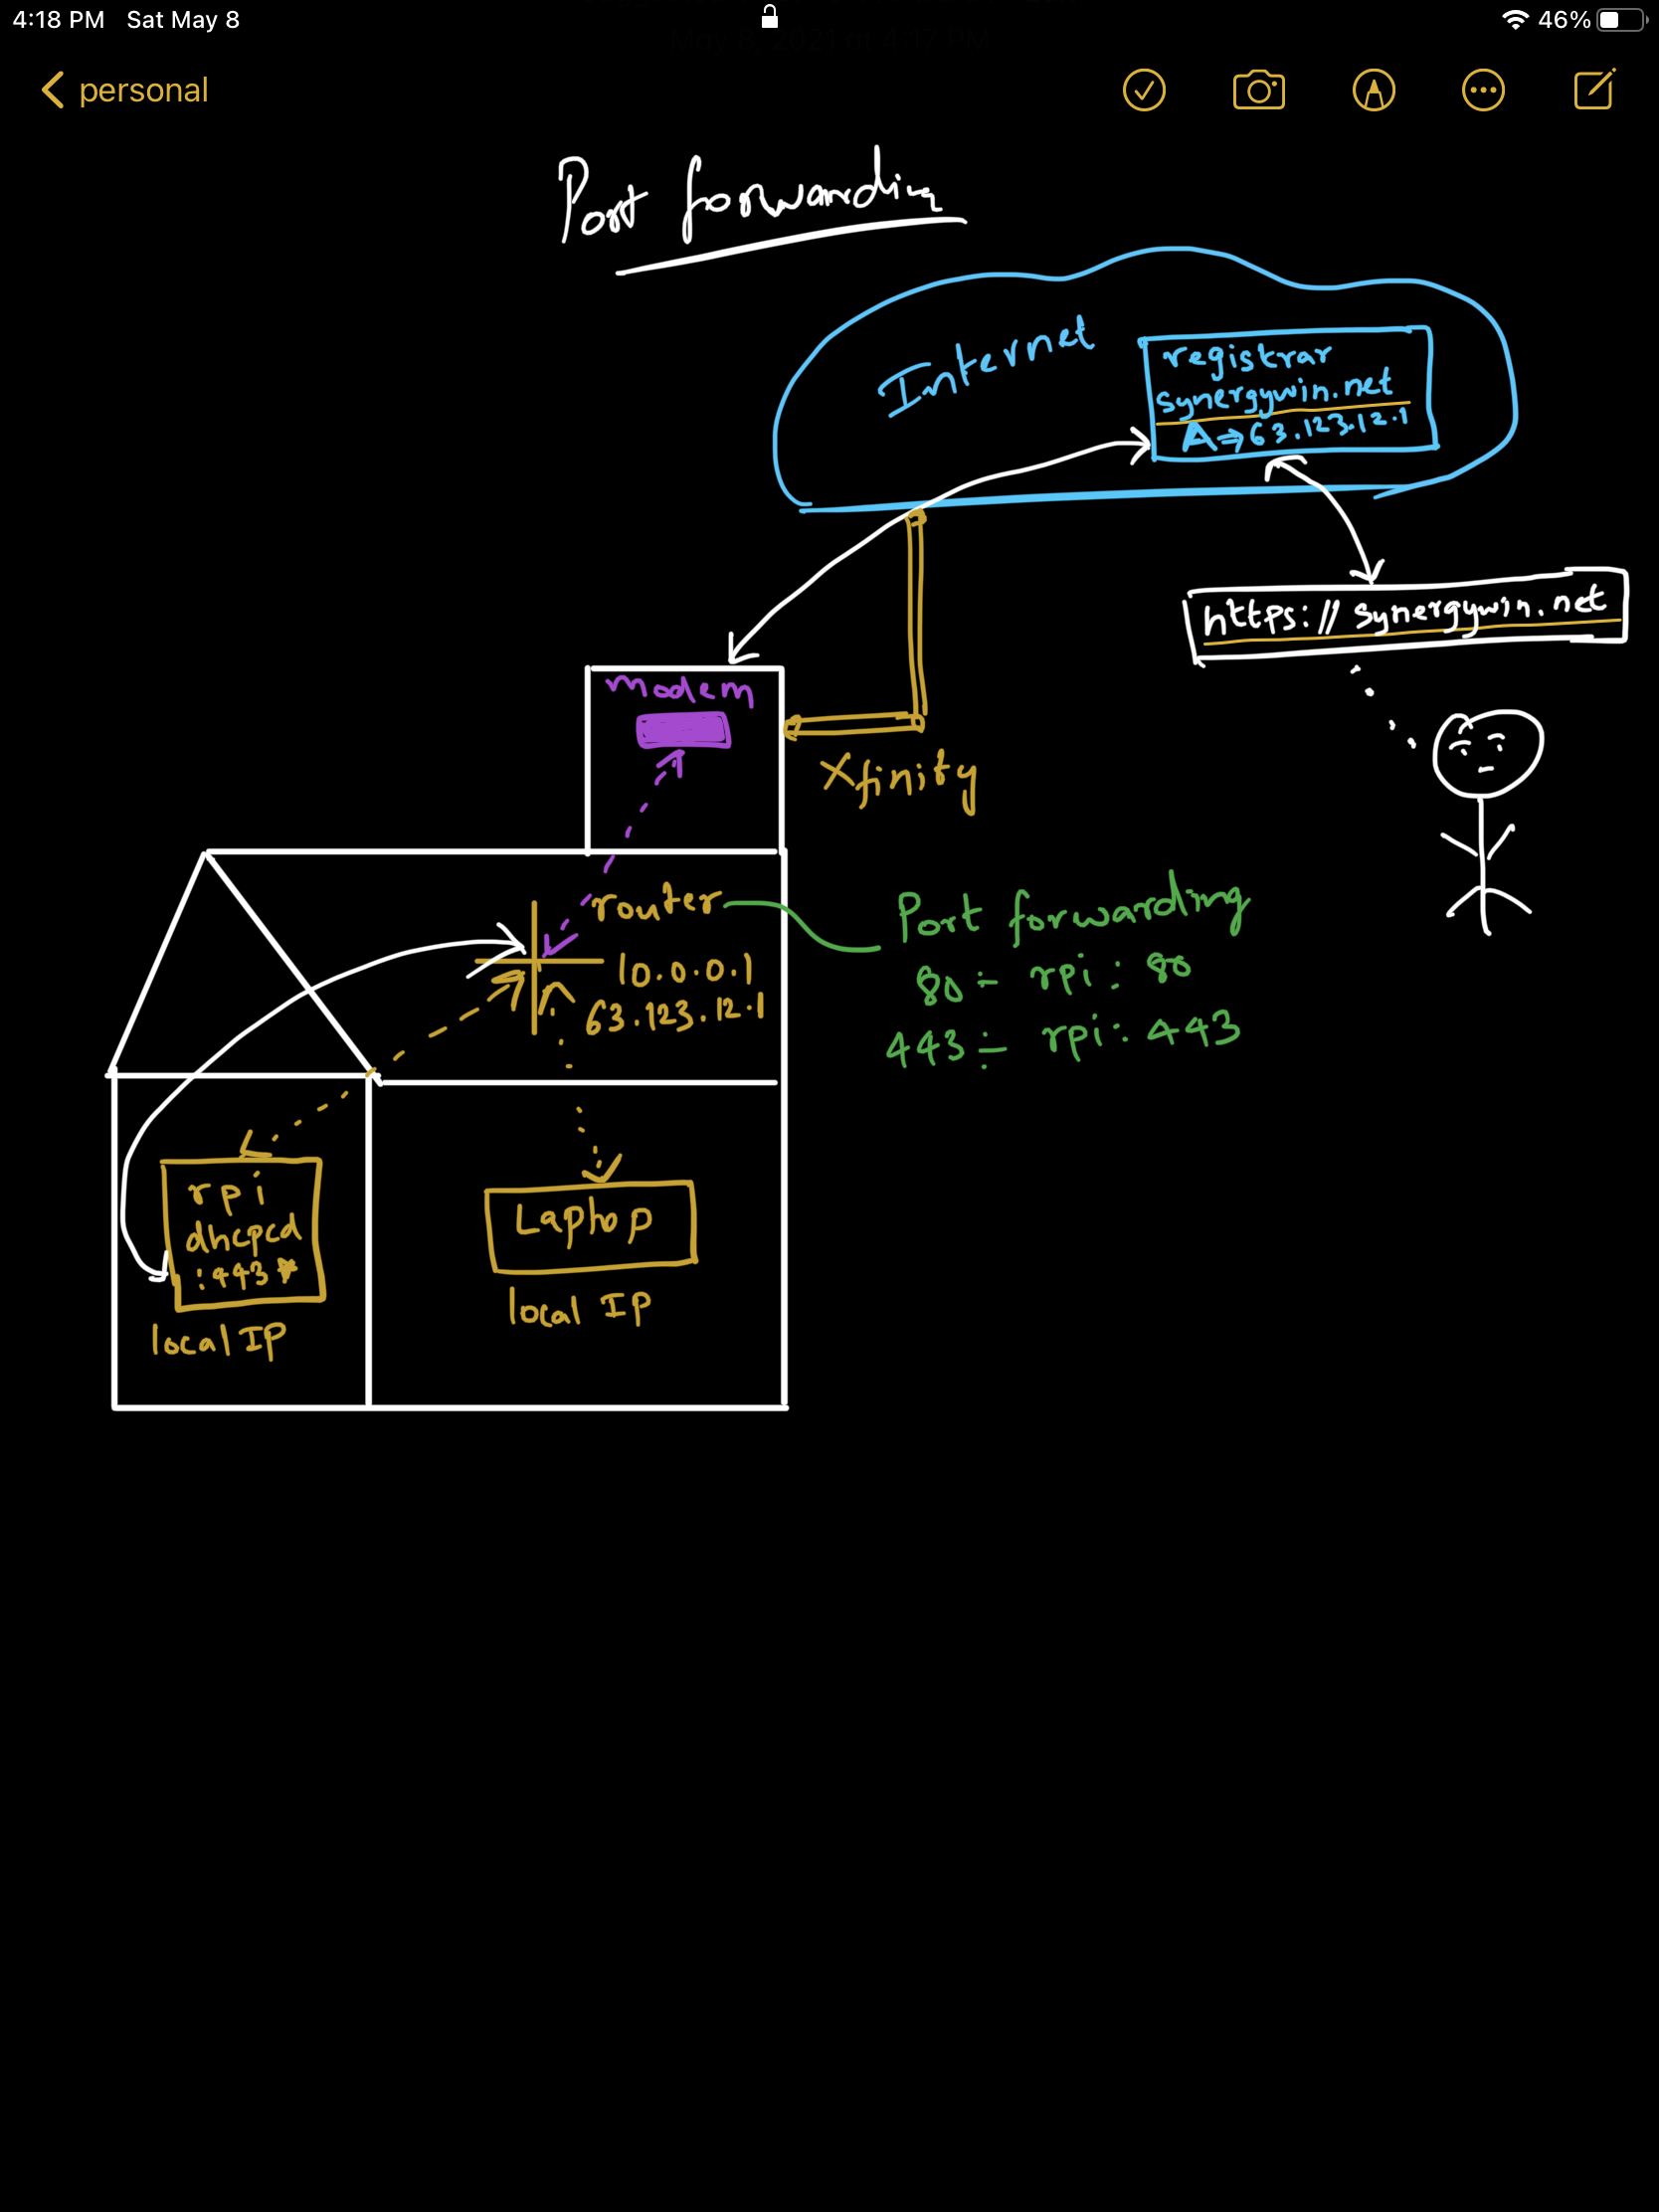 4:18 PM Sat May 8
46%
May 8, 2021 at 4:17 PM
personal
Port forwarding
Internet
registrar
synergywin.net
A⇒63.123.12.1
https://synergywin.net
modem
Xfinity
router
10.0.0.1
63.123.12.1
Port forwarding
80 ÷ rpi : 80
443 ÷ rpi : 443
rpi
dhcpcd
:443*
local IP
Laptop
local IP